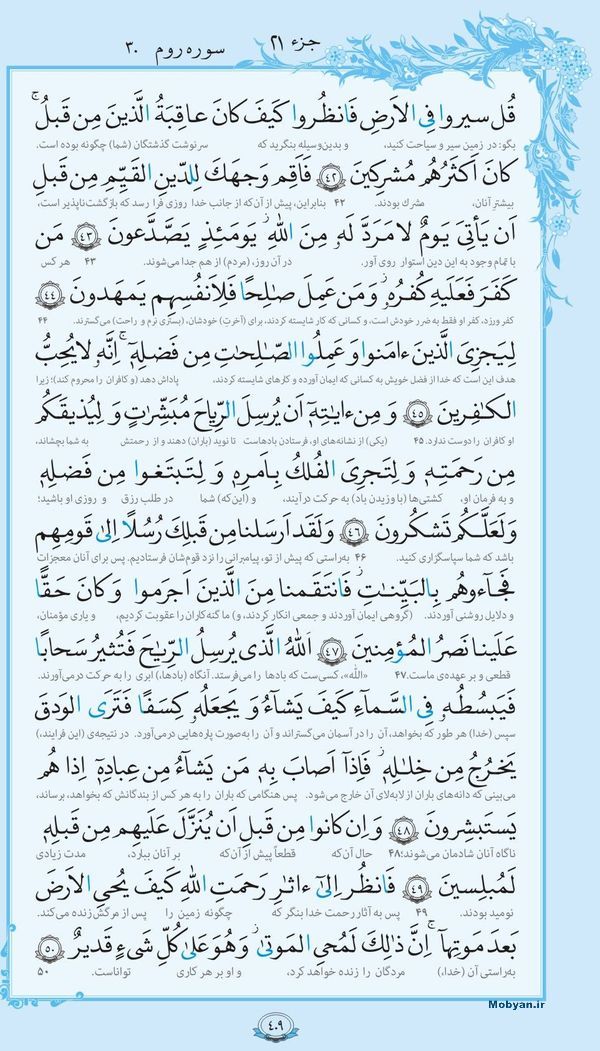 جزء ۲۱
سوره روم ۳۰
قُل سيروا فِى الاَرضِ فَانظُروا كَيفَ كانَ عاقِبَةُ الَّذينَ مِن قَبلُ ۚ
بگو: در زمین سیر و سیاحت کنید، و بدین‌وسیله بنگرید که سرنوشت گذشتگان (شما) چگونه بوده است.
كانَ اَكثَرُهُم مُشرِكينَ ﴿۴۲﴾ فَاَقِم وَجهَكَ لِلدّينِ القَيِّمِ مِن قَبلِ
بیشترِ آنان، مشرک بودند. ۴۲ بنابراین، پیش از آن‌که از جانب خدا روزی فرا رسد که بازگشت‌ناپذیر است،
اَن يَأتِىَ يَومٌ لا مَرَدَّ لَهو مِنَ اللهِ ۖ يَومَئِذٍ يَصَّدَّعونَ ﴿۴۳﴾ مَن
با تمام وجود به این دین استوار روی آور. در آن روز، (مردم) از هم جدا می‌شوند. ۴۳ هر کس
كَفَرَ فَعَلَيهِ كُفرُهو ۖ وَ مَن عَمِلَ صـٰلِحًا فَلِاَنفُسِهِم يَمهَدونَ ﴿۴۴﴾
کفر ورزد، کفر او فقط به ضرر خودش است، و کسانی که کار شایسته کردند، برای (آخرتِ) خودشان، (بستری نرم و راحت) می‌گسترند. ۴۴
لِيَجزِىَ الَّذينَ ءامَنوا وَ عَمِلُوا الصّـٰلِحـٰتِ مِن فَضلِهٖ ۚ اِنَّهو لا يُحِبُّ
هدف این است که خدا از فضل خویش به کسانی که ایمان آورده و کارهای شایسته کردند، پاداش دهد (و کافران را محروم کند)؛ زیرا
الكـٰفِرينَ ﴿۴۵﴾ وَ مِن ءايـٰتِهٖ اَن يُرسِلَ الرِّياحَ مُبَشِّرٰتٍ وَ لِيُذيقَكُم
او کافران را دوست ندارد. ۴۵ (یکی) از نشانه‌های او، فرستادن بادهاست تا نوید (باران) دهند و از رحمتش به شما بچشاند،
مِن رَحمَتِهٖ وَ لِتَجرِىَ الفُلكُ بِاَمرِهٖ وَ لِتَبتَغوا مِن فَضلِهٖ
و به فرمان او، کشتی‌ها (با وزیدن باد) به حرکت درآیند، و (این‌که) شما در طلب رزق و روزی او باشید؛
وَ لَعَلَّكُم تَشكُرونَ ﴿۴۶﴾ وَ لَقَد اَرسَلنا مِن قَبلِكَ رُسُلًا اِلىٰ قَومِهِم
باشد که شما سپاسگزاری کنید. ۴۶ به‌راستی که پیش از تو، پیامبرانی را نزد قوم‌شان فرستادیم. پس برای آنان معجزات
فَجـاءوهُم بِالبَيِّنـٰتِ فَانتَقَمنا مِنَ الَّذينَ اَجرَموا ۖ وَ كانَ حَقًّا
و دلایل روشنی آوردند. (گروهی ایمان آوردند و جمعی انکار کردند، و) ما گنه‌کاران را عقوبت کردیم، و یاری مؤمنان،
عَلَينا نَصرُ المُؤمِنينَ ﴿۴۷﴾ اَللهُ الَّذى يُرسِلُ الرِّيـٰحَ فَتُثيرُ سَحابًا
قطعی و بر عهده‌ی ماست. ۴۷ «الله»، کسی‌ست که بادها را می‌فرستد. آنگاه (بادها،) ابری را به حرکت درمی‌آورند.
فَيَبسُطُهو فِى السَّماءِ كَيفَ يَشاءُ وَ يَجعَلُهو كِسَفًا فَتَرَى الوَدقَ
سپس (خدا) هر طور که بخواهد، آن را در آسمان می‌گستراند و آن را به‌صورت پاره‌هایی درمی‌آورد. در نتیجه‌ی (این فرایند،)
يَخرُجُ مِن خِلـٰلِهٖ ۖ فَاِذا اَصابَ بِهٖ مَن يَشاءُ مِن عِبادِهٖ اِذا هُم
می‌بینی که دانه‌های باران از لابه‌لای آن خارج می‌شود. پس هنگامی که باران را به هر کس از بندگانش که بخواهد، برساند،
يَستَبشِرونَ ﴿۴۸﴾ وَ اِن كانوا مِن قَبلِ اَن يُنَزَّلَ عَلَيهِم مِن قَبلِهٖ
ناگاه آنان شادمان می‌شوند؛ ۴۸ حال آن‌که قطعاً پیش از آن‌که بر آنان ببارد، مدت زیادی
لَمُبلِسينَ ﴿۴۹﴾ فَانظُر اِلىٰ ءاثـٰرِ رَحمَتِ اللهِ كَيفَ يُحىِ الاَرضَ
نومید بودند. ۴۹ پس به آثار رحمت خدا بنگر که چگونه زمین را پس از مرگش زنده می‌کند.
بَعدَ مَوتِها ۚ اِنَّ ذٰلِكَ لَمُحىِ المَوتىٰ ۖ وَ هُوَ عَلىٰ كُلِّ شَىءٍ قَديرٌ ﴿۵۰﴾
به‌راستی آن (خدا،) مردگان را زنده خواهد کرد، و او بر هر کاری تواناست. ۵۰
Mobyan.ir
۴۰۹